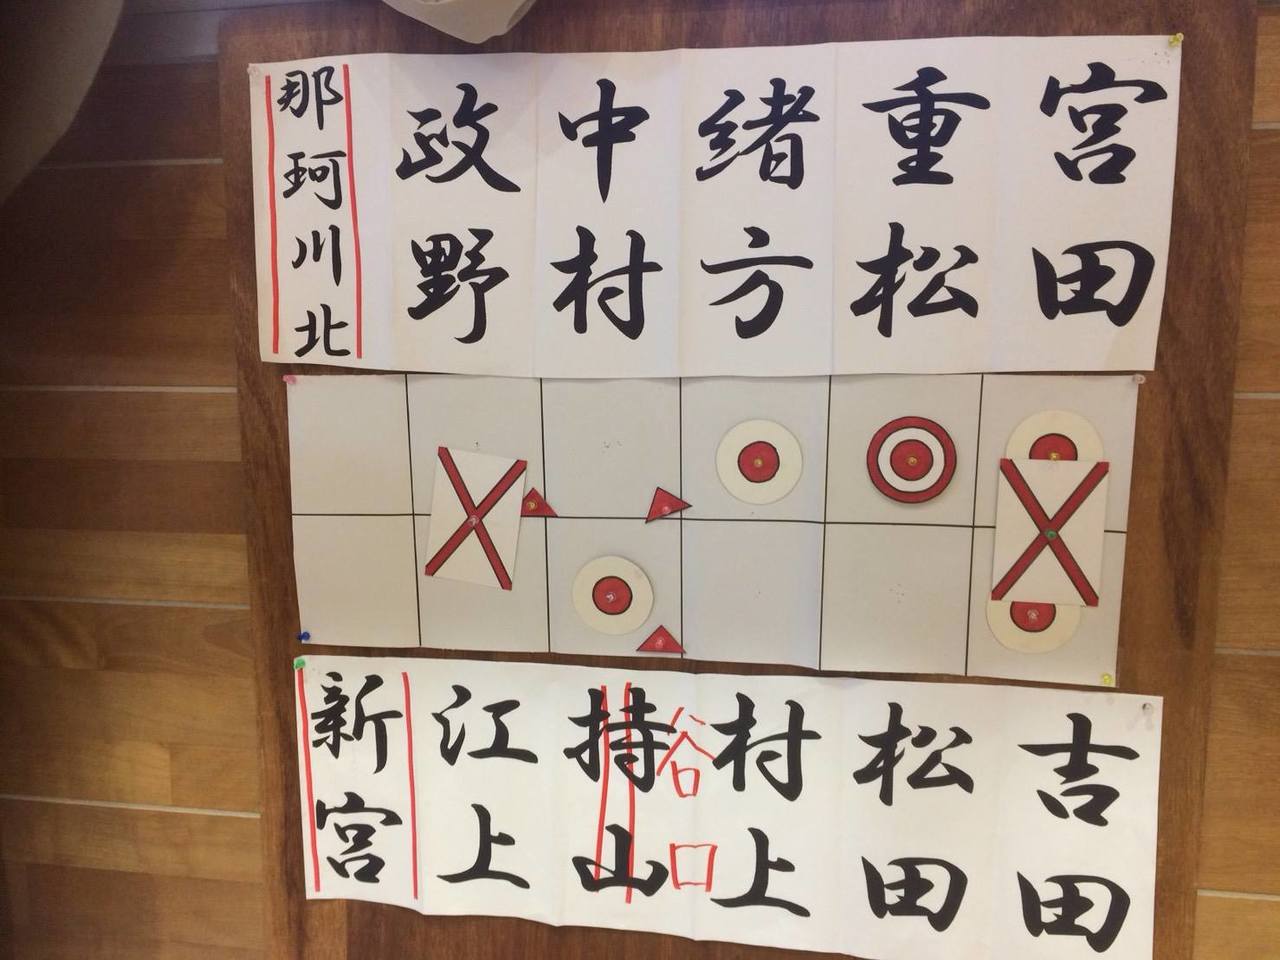 宮田
重松
緒方
中村
政野
那珂川北
吉田
松田
村上
谷口
持山
江上
新宮